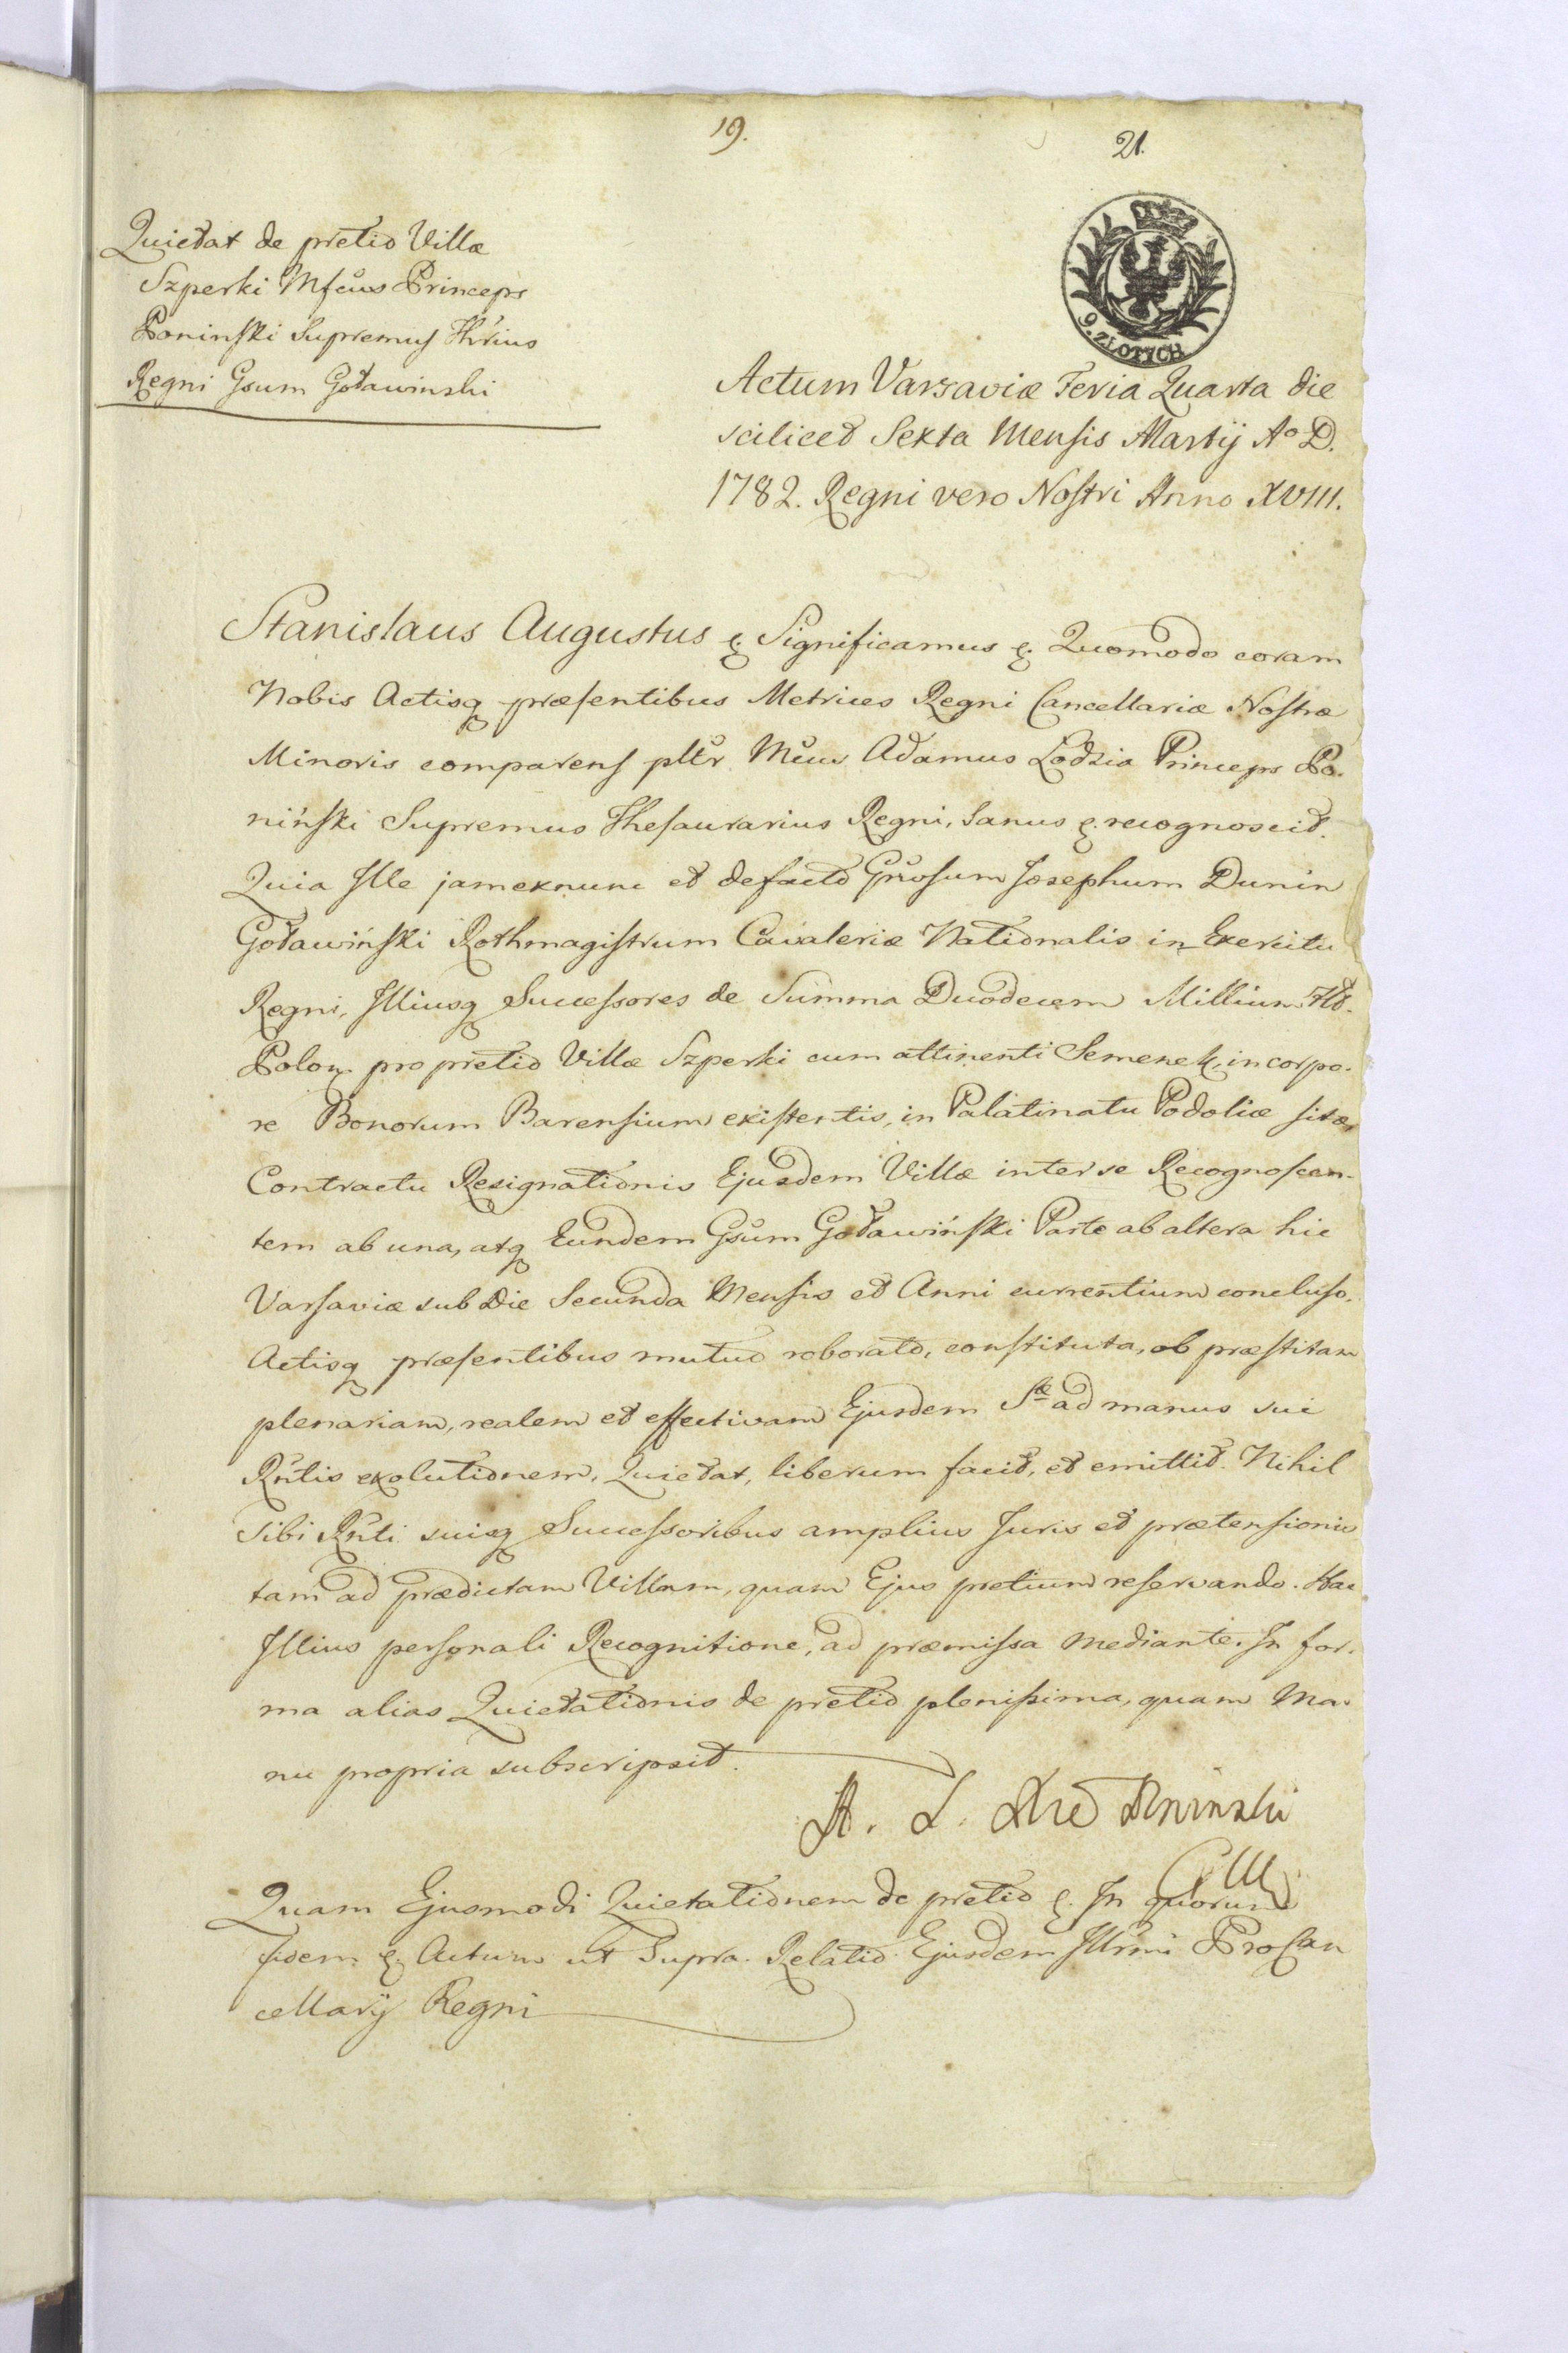 19.
21.
Quietat de pretio Villæ
Szperki Mfcus Princeps
Poninski Supremus Thrius
Regni Gsum Goławinski
9. ZŁOTYCH
Actum Varsaviæ Feria Quarta die
scilicet Sexta Mensis Martij Aº D.
1782. Regni vero Nostri Anno XVIII.
Stanislaus Augustus &. Significamus &. Quomodo coram
Nobis Actisq præsentibus Metrices Regni Cancellariæ Nostræ
Minoris comparens pltr Mcus Adamus Lodzia Princeps Po-
niński Supremus Thesaurarius Regni, Sanus &. recognoscit.
Quia Ille jamexnunc et defacto Gnrosum Josephum Dunin
Goławiński Rothmagistrum Cavaleriæ Nationalis in Exercitu
Regni, Illiusq Successores de Summa Duodecem Millium Flo.
Polon. pro pretio Villæ Szperki cum attinenti Semenek, in corpo-
re Bonorum Barensium existentis, in Palatinatu Podoliæ sitæ,
Contractu Resignationis Ejusdem Villæ inter se Recognoscen-
tem ab una, atq Eundem Gsum Goławiński Parte ab altera hic
Varsaviæ sub Die Secunda Mensis et Anni currentium concluso,
Actisq præsentibus mutuo roborato, constituta, ob præstitam
plenariam, realem et effectivam Ejusdem Sæ ad manus sui
Rntis exolutionem, Quietat, liberum facit, et emittit. Nihil
Sibi Rnti suisq Successoribus amplius Juris et prætensionis
tam ad prædictam Villam, quam Ejus pretium reservando. Hac
Illius personali Recognitione, ad præmissa mediante. In for-
ma alias Quietationis de pretio plenissima, quam Ma-
nu propria subscripsit.
A. L. Poninski
Quam Ejusmodi Quietationem de pretio &. In quorum
fidem &. Actum ut Supra. Relatio Ejusdem Illrmi ProCan
cellarij Regni